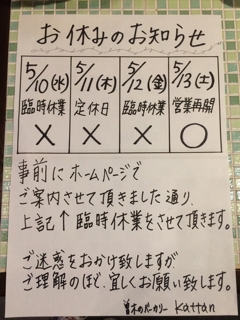 お休みのお知らせ
5/10(水) 5/11(木) 5/12(金) 5/13(土)
臨時休業 定休日 臨時休業 営業再開
× × × ○
事前にホームページで
ご案内させて頂きました通り、
上記↑臨時休業をさせて頂きます。
ご迷惑をおかけ致しますが
ご理解のほど、宜しくお願い致します。
木のベーカリー Kattan